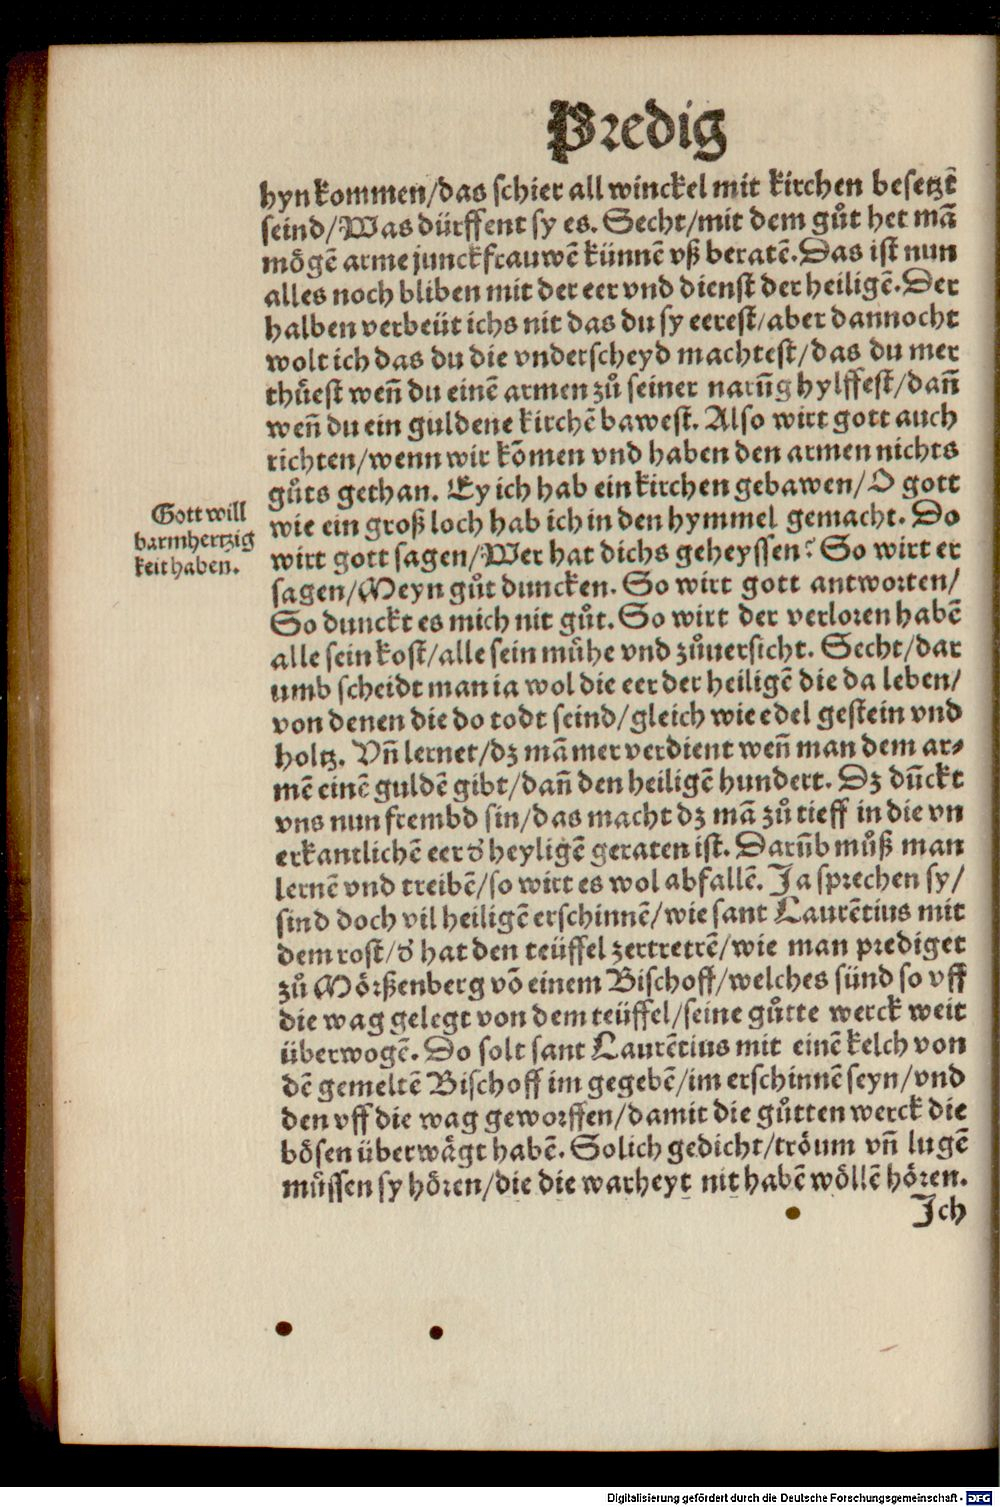 Predig
hyn kommen/das schier all winckel mit kirchen besetzt̄
seind/Was dürffent sy es. Secht/mit dem gůt het mā
mögē arme junckfrauwē künnē vß beratē. Das ist nun
alles noch bliben mit der eer vnd dienst der heiligē. Der
halben verbeüt ichs nit das du sy eerest/aber dannocht
wolt ich das du die vnderscheyd machtest/das du mer
thüest weñ du einē armen zů seiner narūg hylffest/dañ
weñ du ein guldene kirchē bawest. Also wirt gott auch
richten/wenn wir kōmen vnd haben den armen nichts
gůts gethan. Ey ich hab ein kirchen gebawen/O gott
Gott will
barmhertzig
keit haben.
wie ein groß loch hab ich in den hymmel gemacht. Do
wirt gott sagen/Wer hat dichs geheyssen? So wirt er
sagen/Meyn gůt duncken. So wirt gott antworten/
So dunckt es mich nit gůt. So wirt der verloren habē
alle sein kost/alle sein mühe vnd zůuersicht. Secht/dar
umb scheidt man ia wol die eer der heiligē die da leben/
von denen die do todt seind/gleich wie edel gestein vnd
holtz. Vñ lernet/dz mā mer verdient weñ man dem ar⸗
mē einē guldē gibt/dañ den heiligē hundert. Dz dūckt
vns nun frembd sin/das macht dz mā zů tieff in die vn
erkantlichē eer d̕ heyligē geraten ist. Darūb můß man
lernē vnd treibē/so wirt es wol abfallē. Ja sprechen sy/
sind doch vil heiligē erschinnē/wie sant Laurētius mit
dem rost/d̕ hat den teüffel zertretrē/wie man prediget
zů Mörßenberg vō einem Bischoff/welches sünd so vff
die wag gelegt von dem teüffel/seine gůtte werck weit
überwogē. Do solt sant Laurētius mit einē kelch von
dē gemeltē Bischoff im gegebē/im erschinnē seyn/vnd
den vff die wag geworffen/damit die gůtten werck die
bösen überwägt habē. Solich gedicht/tröum vñ lugē
müssen sy hören/die die warheyt nit habē wöllē hören.
Ich
Digitalisierung gefördert durch die Deutsche Forschungsgemeinschaft - DFG